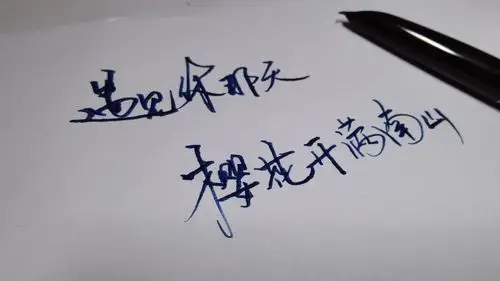 遇见你那天
樱花开满南山